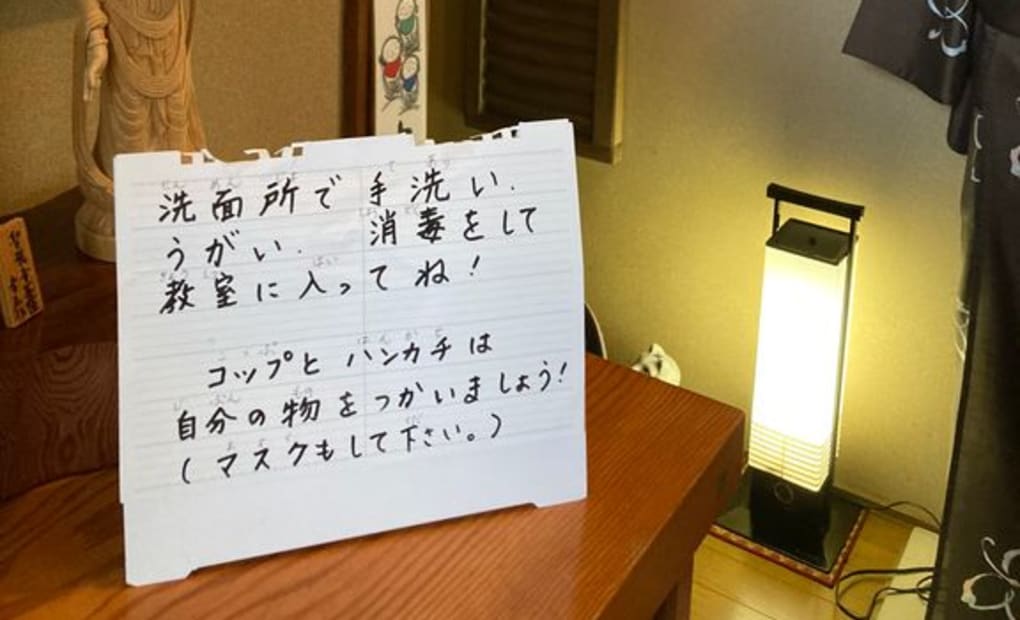 洗面所で 手洗い.
うがい. 消毒をして
教室に入って ね!
コップと ハンカチは
自分の物をつかいましょう!
(マスクもして下さい。)